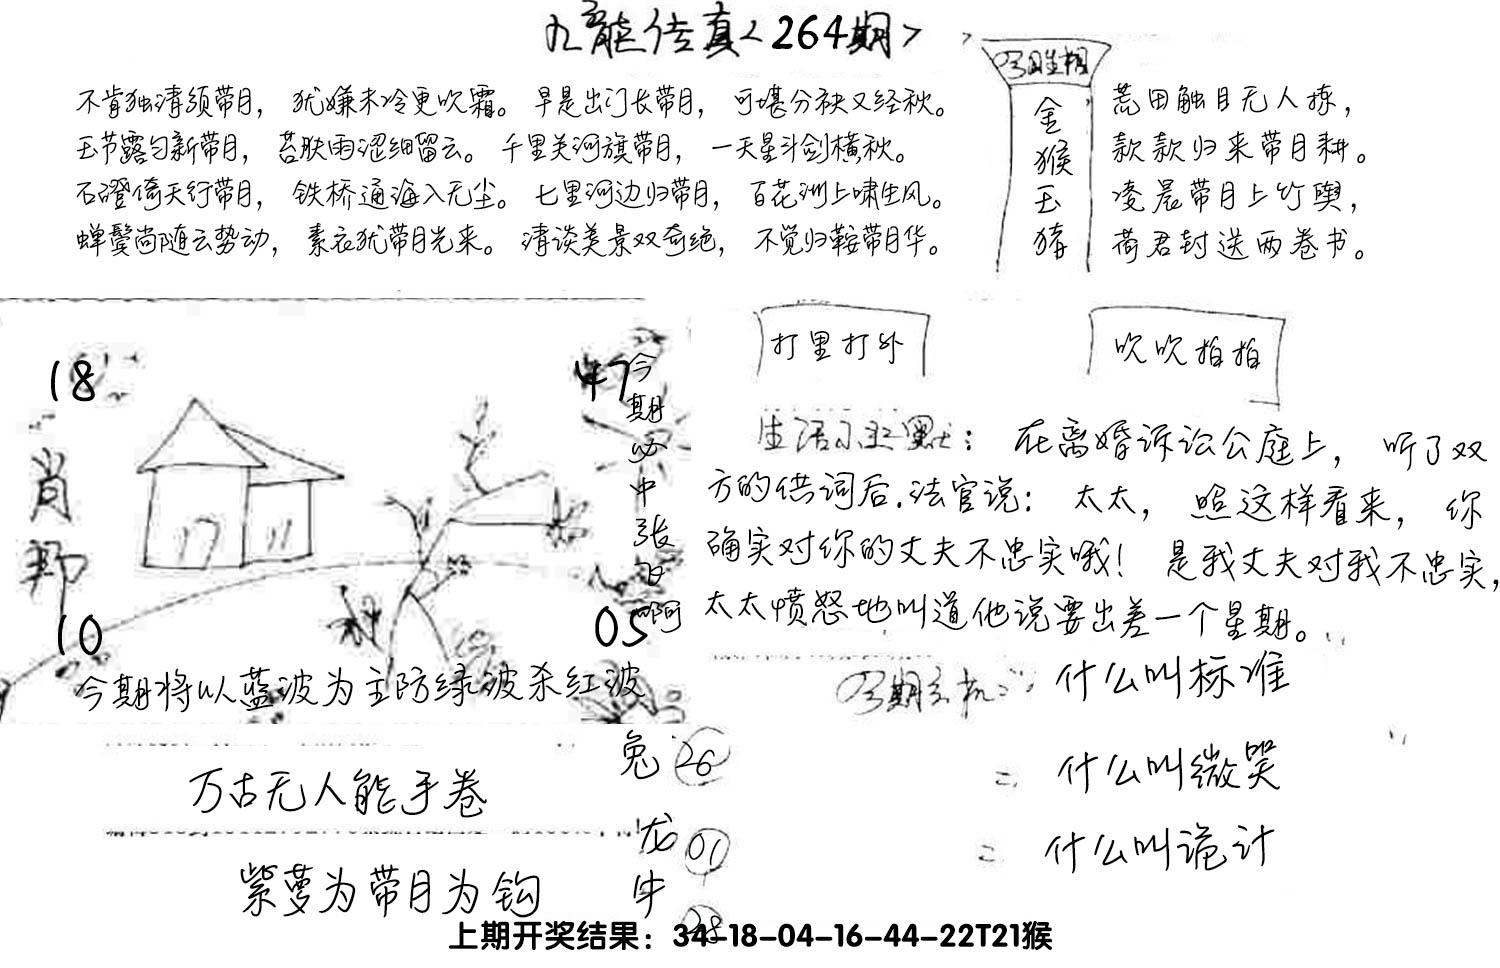 九龙传真<264期>
不肯独清须带月，犹嫌未冷更吹霜。早是出门长带月，可堪分袂又经秋。
玉节露匀新带月，苔肤雨涩细留云。千里关河旗带月，一天星斗剑横秋。
石磴倚天行带月，铁桥通海入无尘。七里河边归带月，百花洲上啸生风。
蝉鬓尚随云势动，素衣犹带月光来。清谈美景双奇绝，不觉归鞍带月华。
金猴玉猪
荒田触目无人拣，
款款归来带月耕。
凌晨带月上竹舆，
荷君封送两卷书。
18
47
肖
10
05
今期必中张飞啊
今期将以蓝波为主防绿波杀红波
打里打外
吹吹拍拍
生活小幽默：在离婚诉讼公庭上，听了双
方的供词后.法官说：太太，照这样看来，你
确实对你的丈夫不忠实哦！是我丈夫对我不忠实，
太太愤怒地叫道他说要出差一个星期。
今期玄机：什么叫标准
二 什么叫微笑
二 什么叫诡计
万古无人能手卷
紫萝为带月为钩
兔 26
龙 01
牛 28
上期开奖结果：34-18-04-16-44-22T21猴